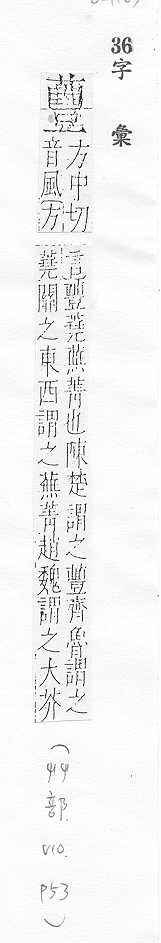 36字 彙
蘴
方中切
音風(方
言蘴蕘蕪菁也陳楚謂之蘴齊魯謂之
蕘關之東西謂之蕪菁趙魏謂之大芥
(艸部. V10. P53)